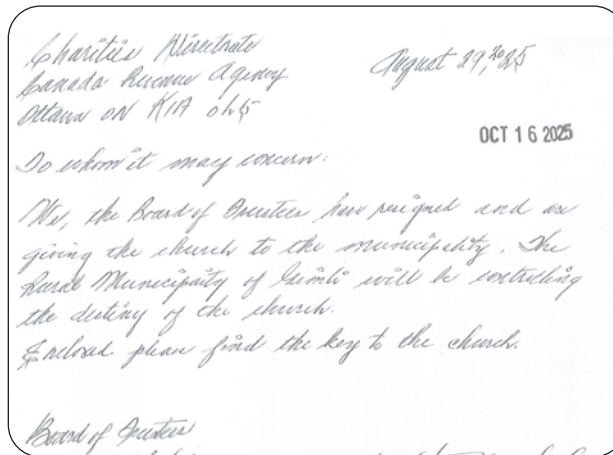 Charities Directorate
Canada Revenue Agency
Ottawa ON K1A 0L5
August 29, 2025
OCT 16 2025
To whom it may concern:
We, the Board of Trustees have resigned and are
giving the church to the municipality. The
Rural Municipality of Gimli will be controlling
the destiny of the church.
Enclosed please find the key to the church.
Board of Trustees